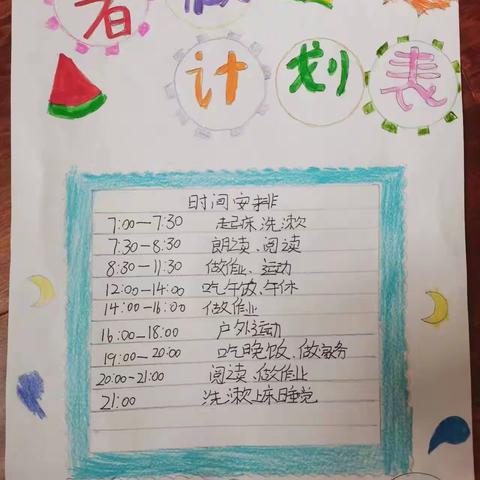 暑假
计划表
时间安排
7:00—7:30 起床洗漱
7:30—8:30 朗读、阅读
8:30—11:30 做作业、运动
12:00—14:00 吃午饭、午休
14:00—16:00 做作业
16:00—18:00 户外运动
19:00—20:00 吃晚饭、做家务
20:00—21:00 阅读、做作业
21:00 洗漱上床睡觉